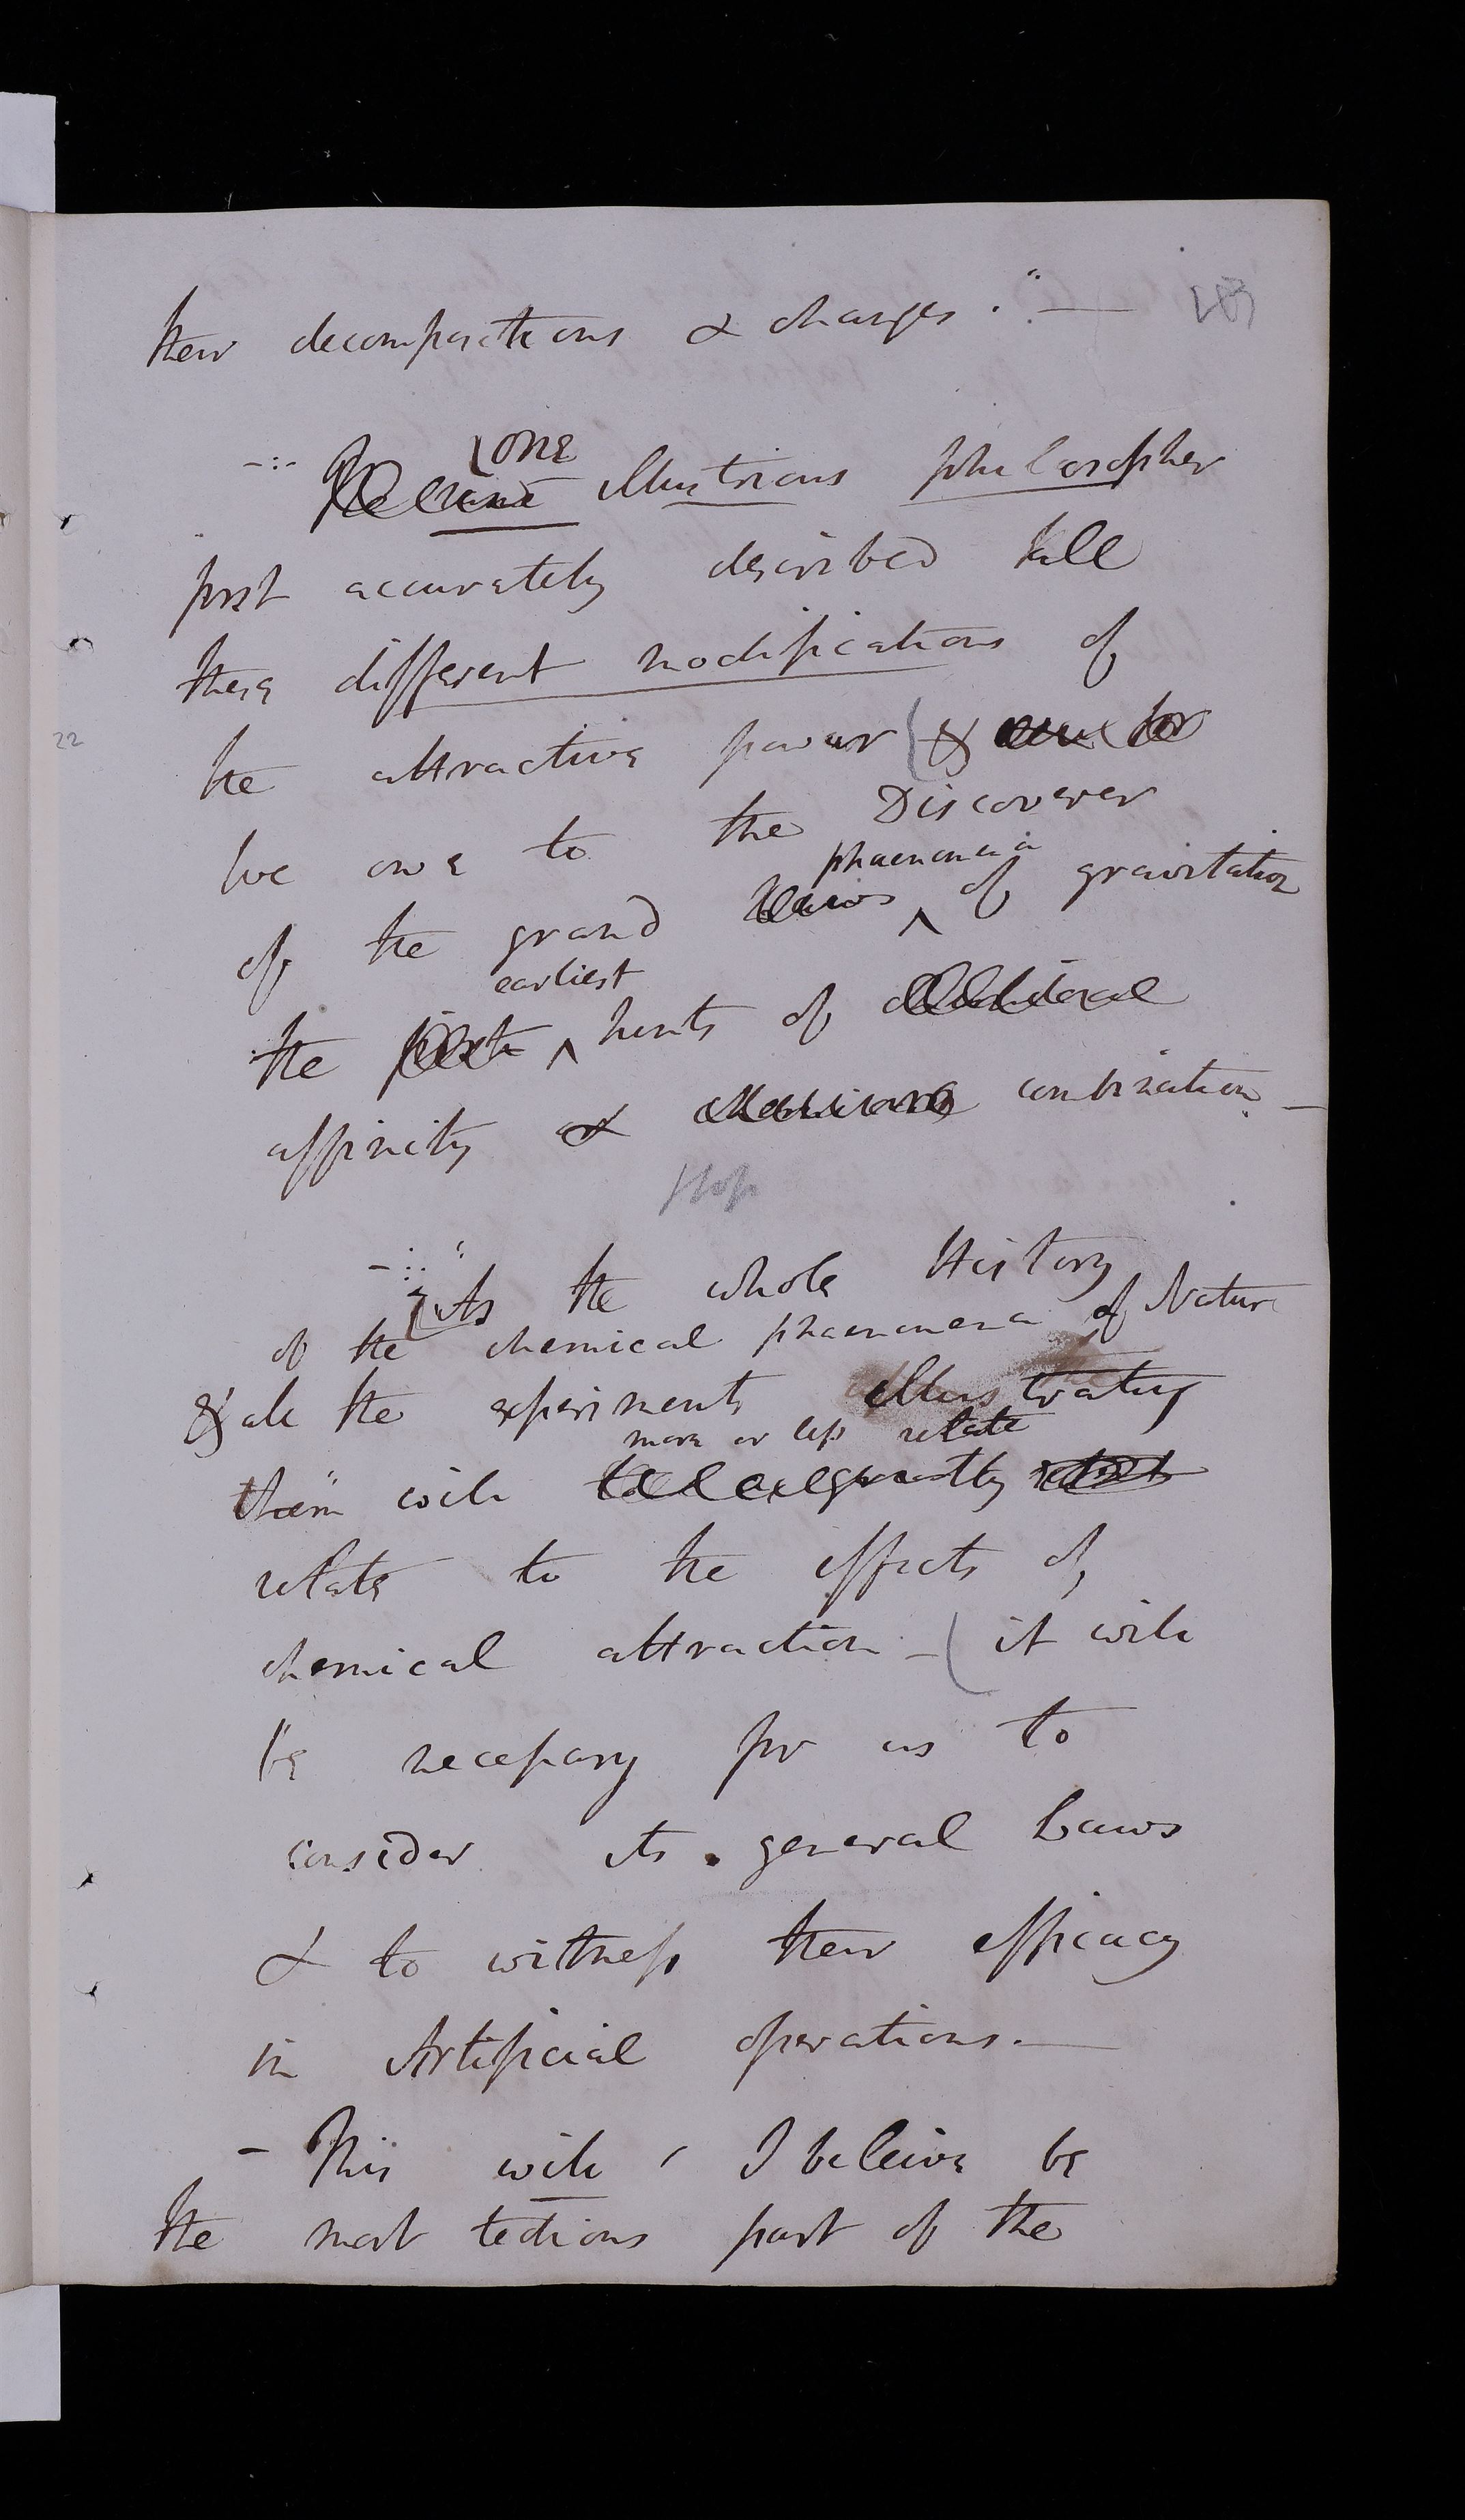 their decompositions & changes." —
one
illustrious philosopher
first accurately described all
these different modifications of
the attractive power
we owe to the Discoverer
phaenomena
of the grand laws of gravitation
earliest
the first hints of
affinity & combination. —
Stop
"As the whole History
of the chemical phaenomena of Nature
& all the experiments illustrating
more or less relate
them" will
relate to the effects of
chemical attraction — (it will
be necessary for us to
consider its general Laws
& to witness their efficacy
in Artificial operations. —
- This will, I believe be
the most tedious part of the
22